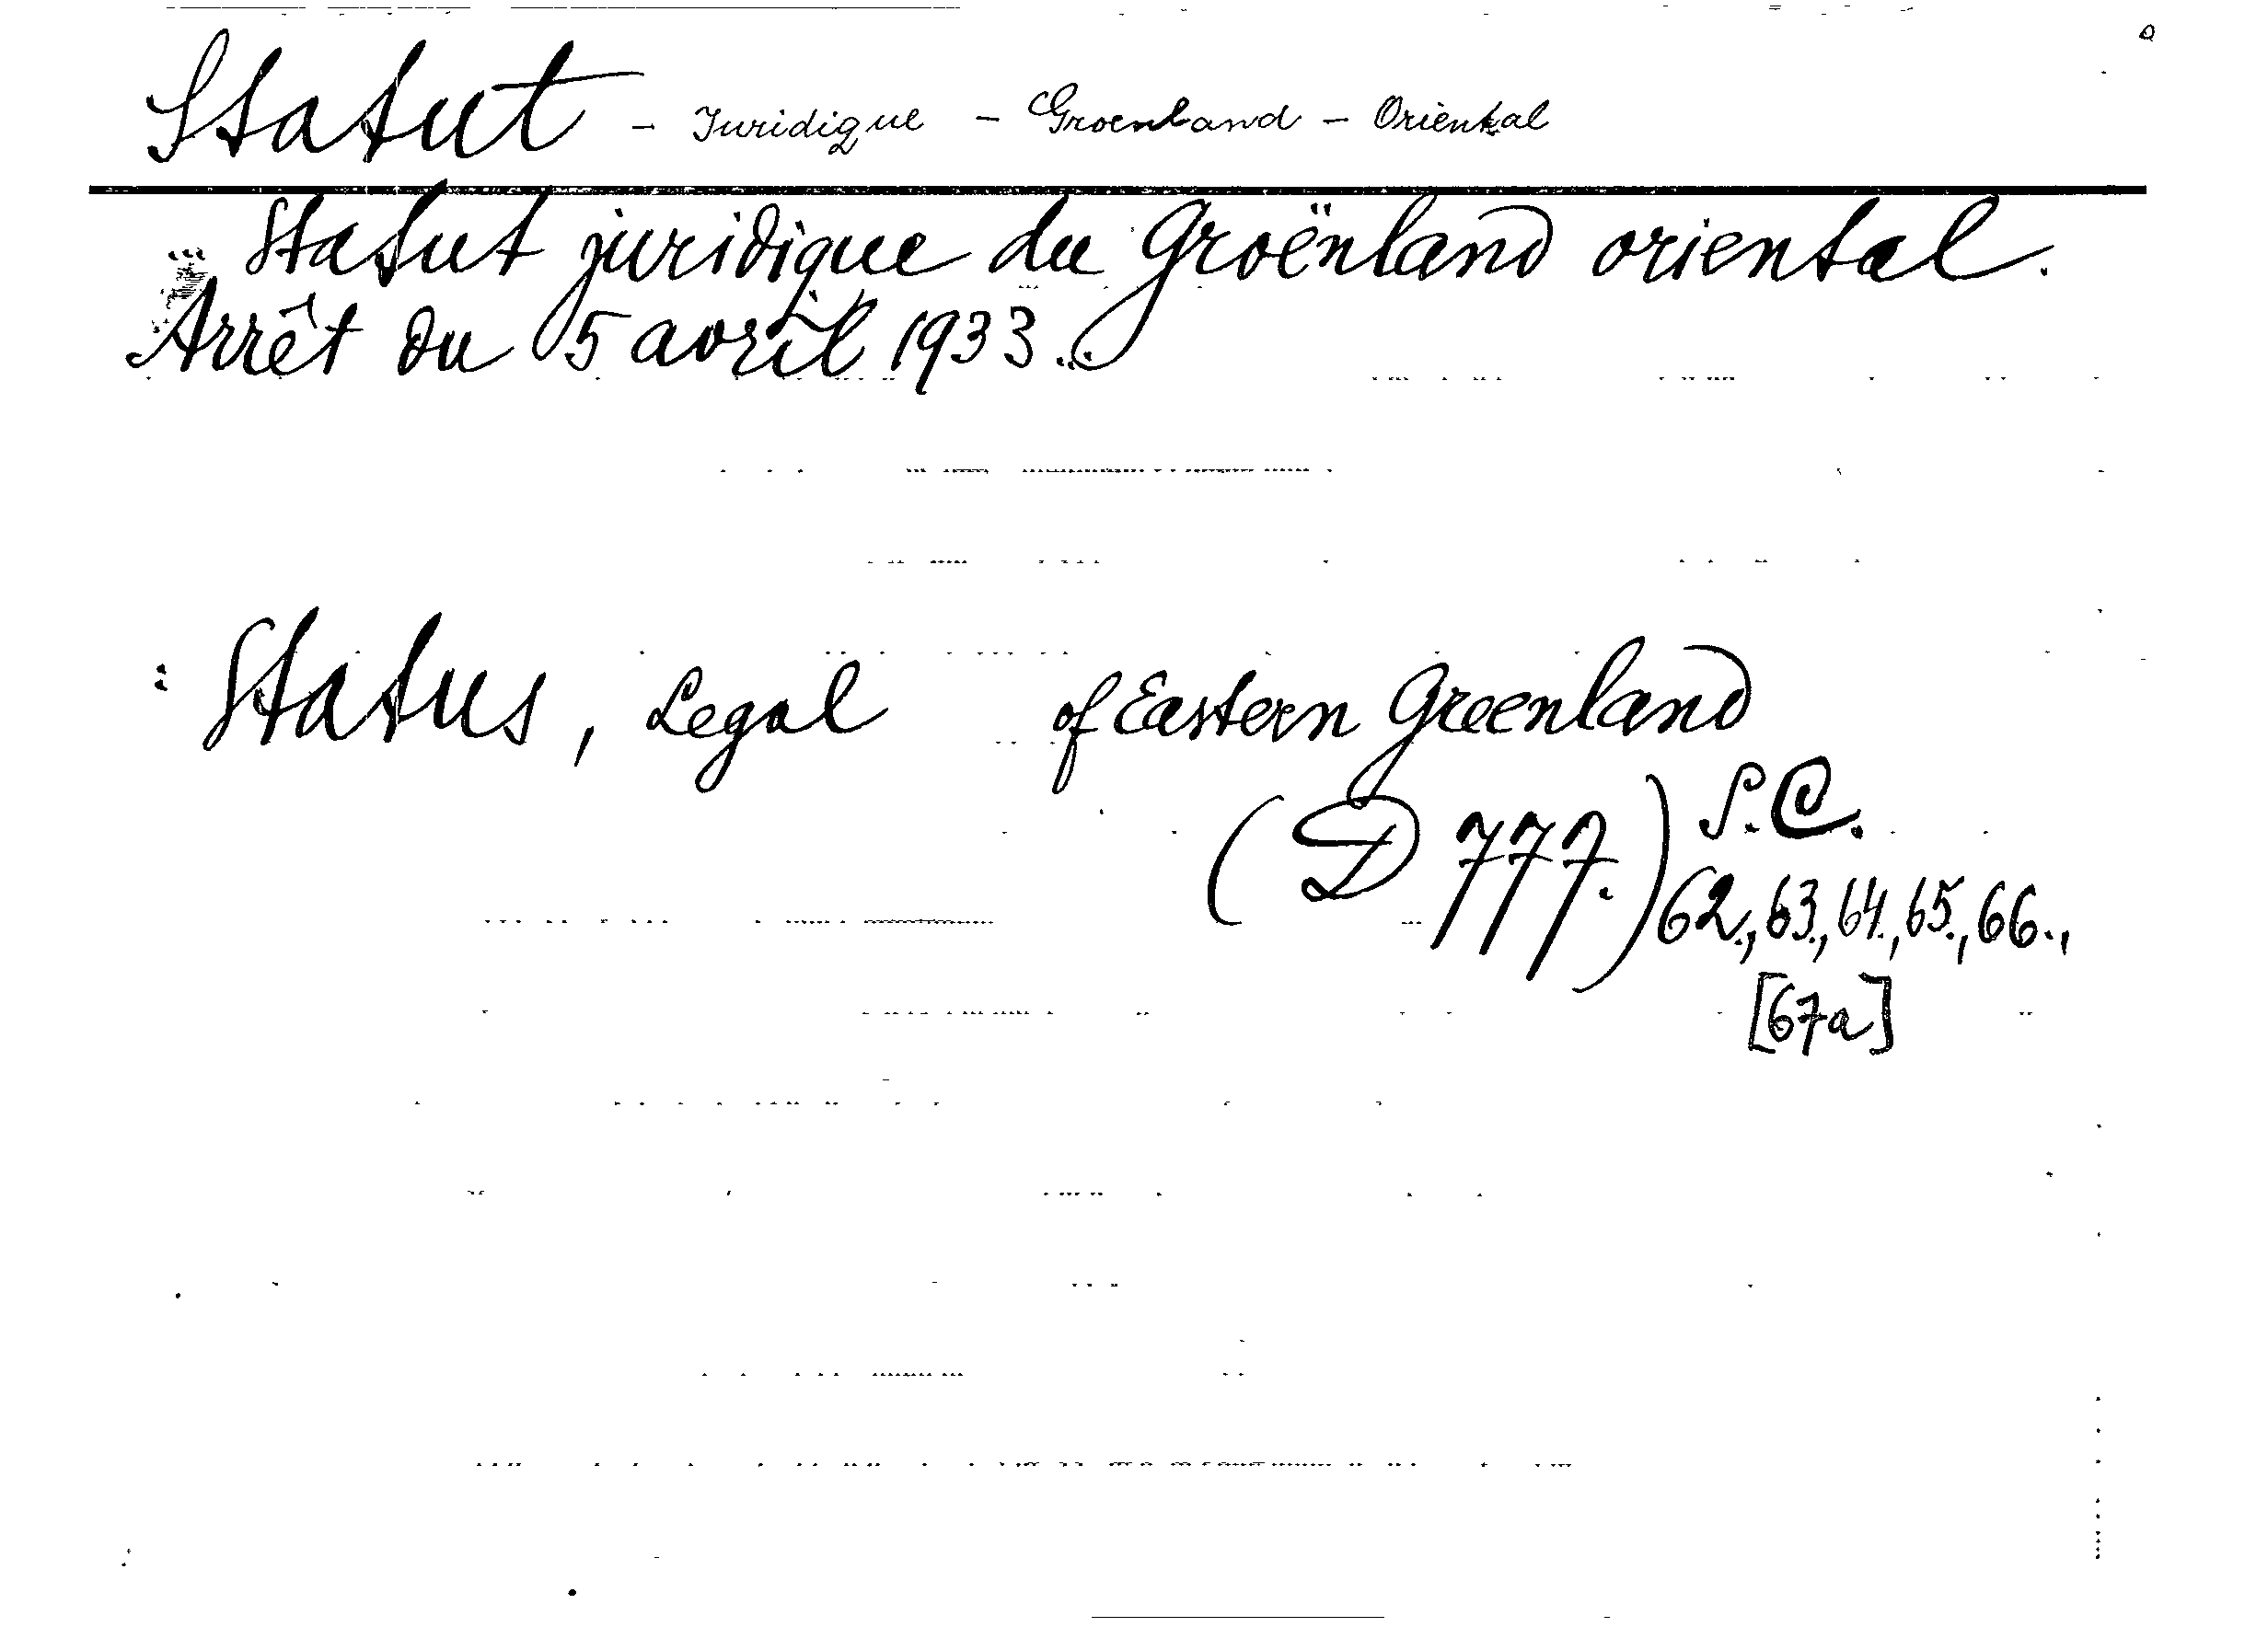 Statut - Juridique - Groenland - Oriental
Statut juridique du Groënland oriental.
Arrêt du 5 avril 1933.
Status, Legal of Eastern Greenland
(D 777.) S.C.
62., 63., 64., 65., 66.,
[67a]